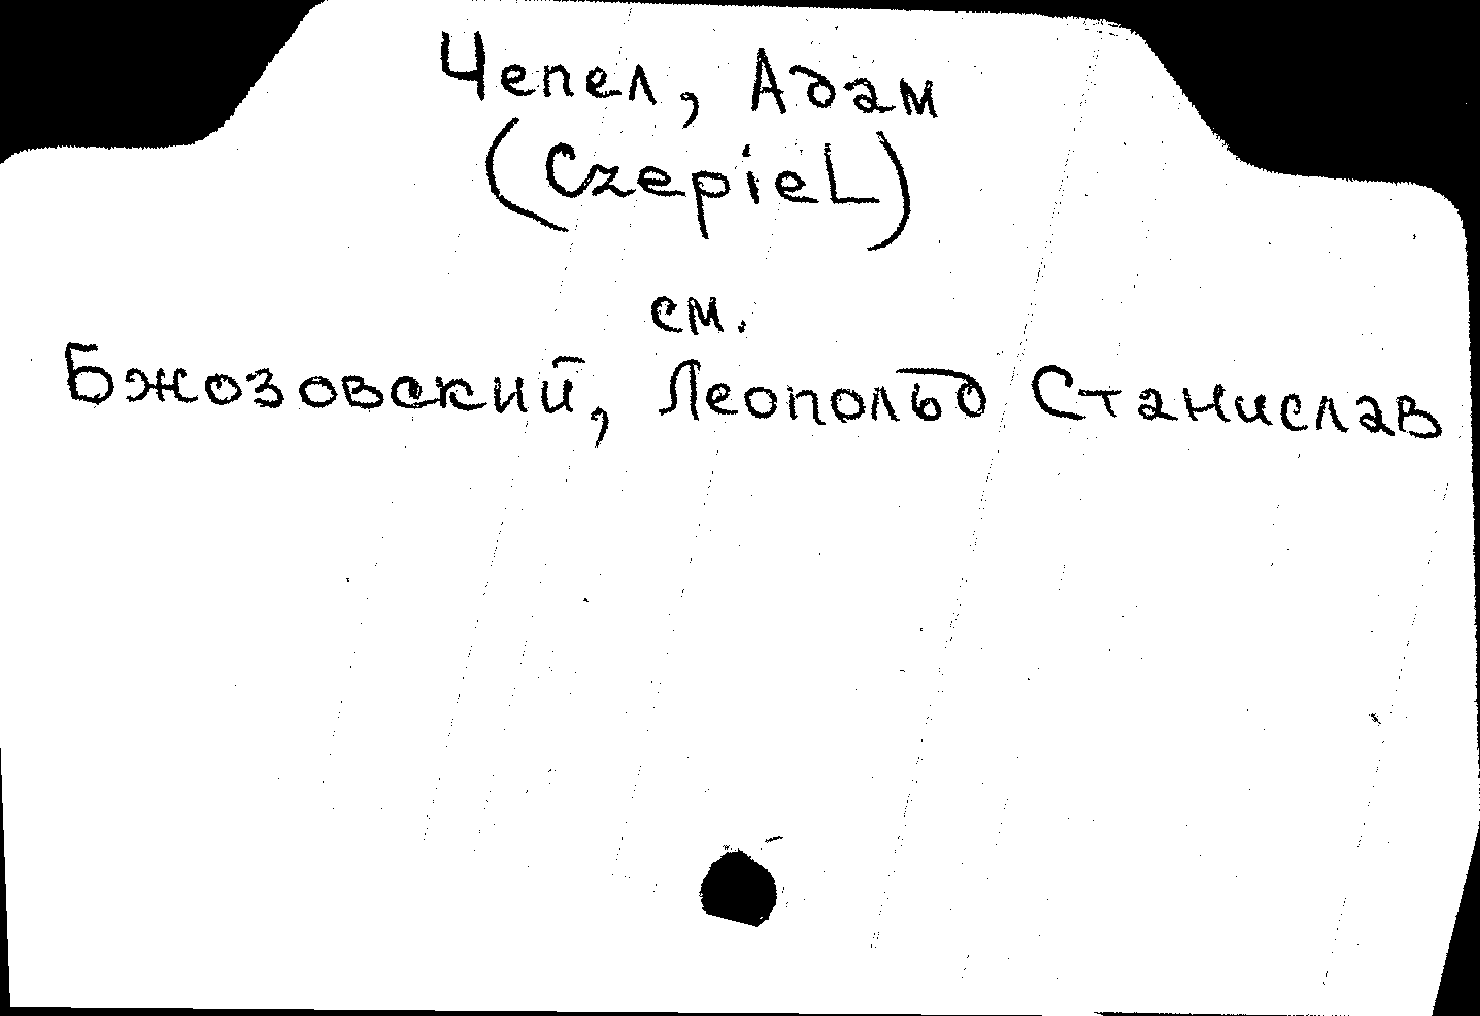 Чепел, Адам
(Czepiel)
см.
Бжозовский, Леопольд Станислав